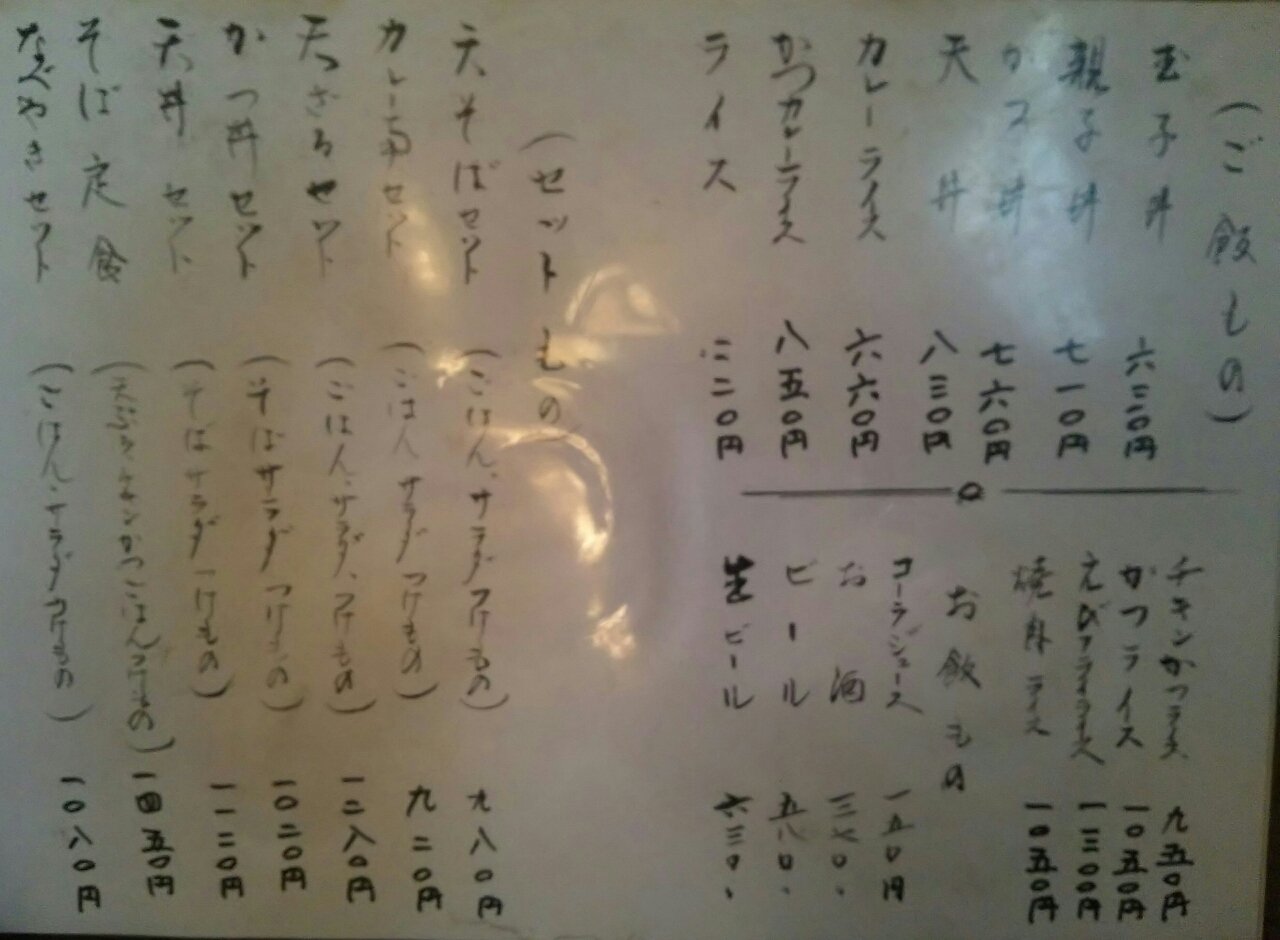 (ご飯もの)
玉子丼 六三〇円
親子丼 七一〇円
かつ丼 七六〇円
天丼 八三〇円
カレーライス 六六〇円
かつカレーライス 八五〇円
ライス 二二〇円
チキンかつライス 九五〇円
かつライス 一〇五〇円
えびフライライス 一三〇〇円
焼肉ライス 一〇五〇円
お飲もの
コーラジュース 一五〇円
お酒
ビール 五八〇.
生ビール 六三〇.
(セットもの)
天そばセット (ごはん、サラダつけもの) 九八〇円
カレー南セット (ごはんサラダつけもの) 九二〇円
天ざるセット (ごはん、サラダ、つけもの) 一二八〇円
かつ丼セット (そばサラダつけもの) 一〇二〇円
天丼セット (そばサラダつけもの) 一一二〇円
そば定食 (天ぷらチキンかつごはんつけもの) 一四五〇円
なべやきセット (ごはん、サラダつけもの) 一〇八〇円